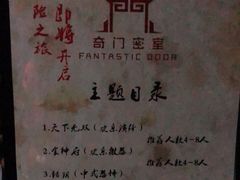 险之旅
即将开启
奇门密室
FANTASTIC DOOR
主题目录
1.天下无双（欢乐演绎）
推荐人数4-8人
2.金神府（欢乐微恐）
推荐人数4-8人
3.
（中式恐怖）